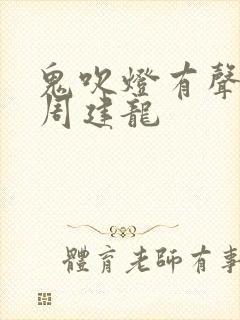 鬼吹燈有聲
周建龍
體育老師有事